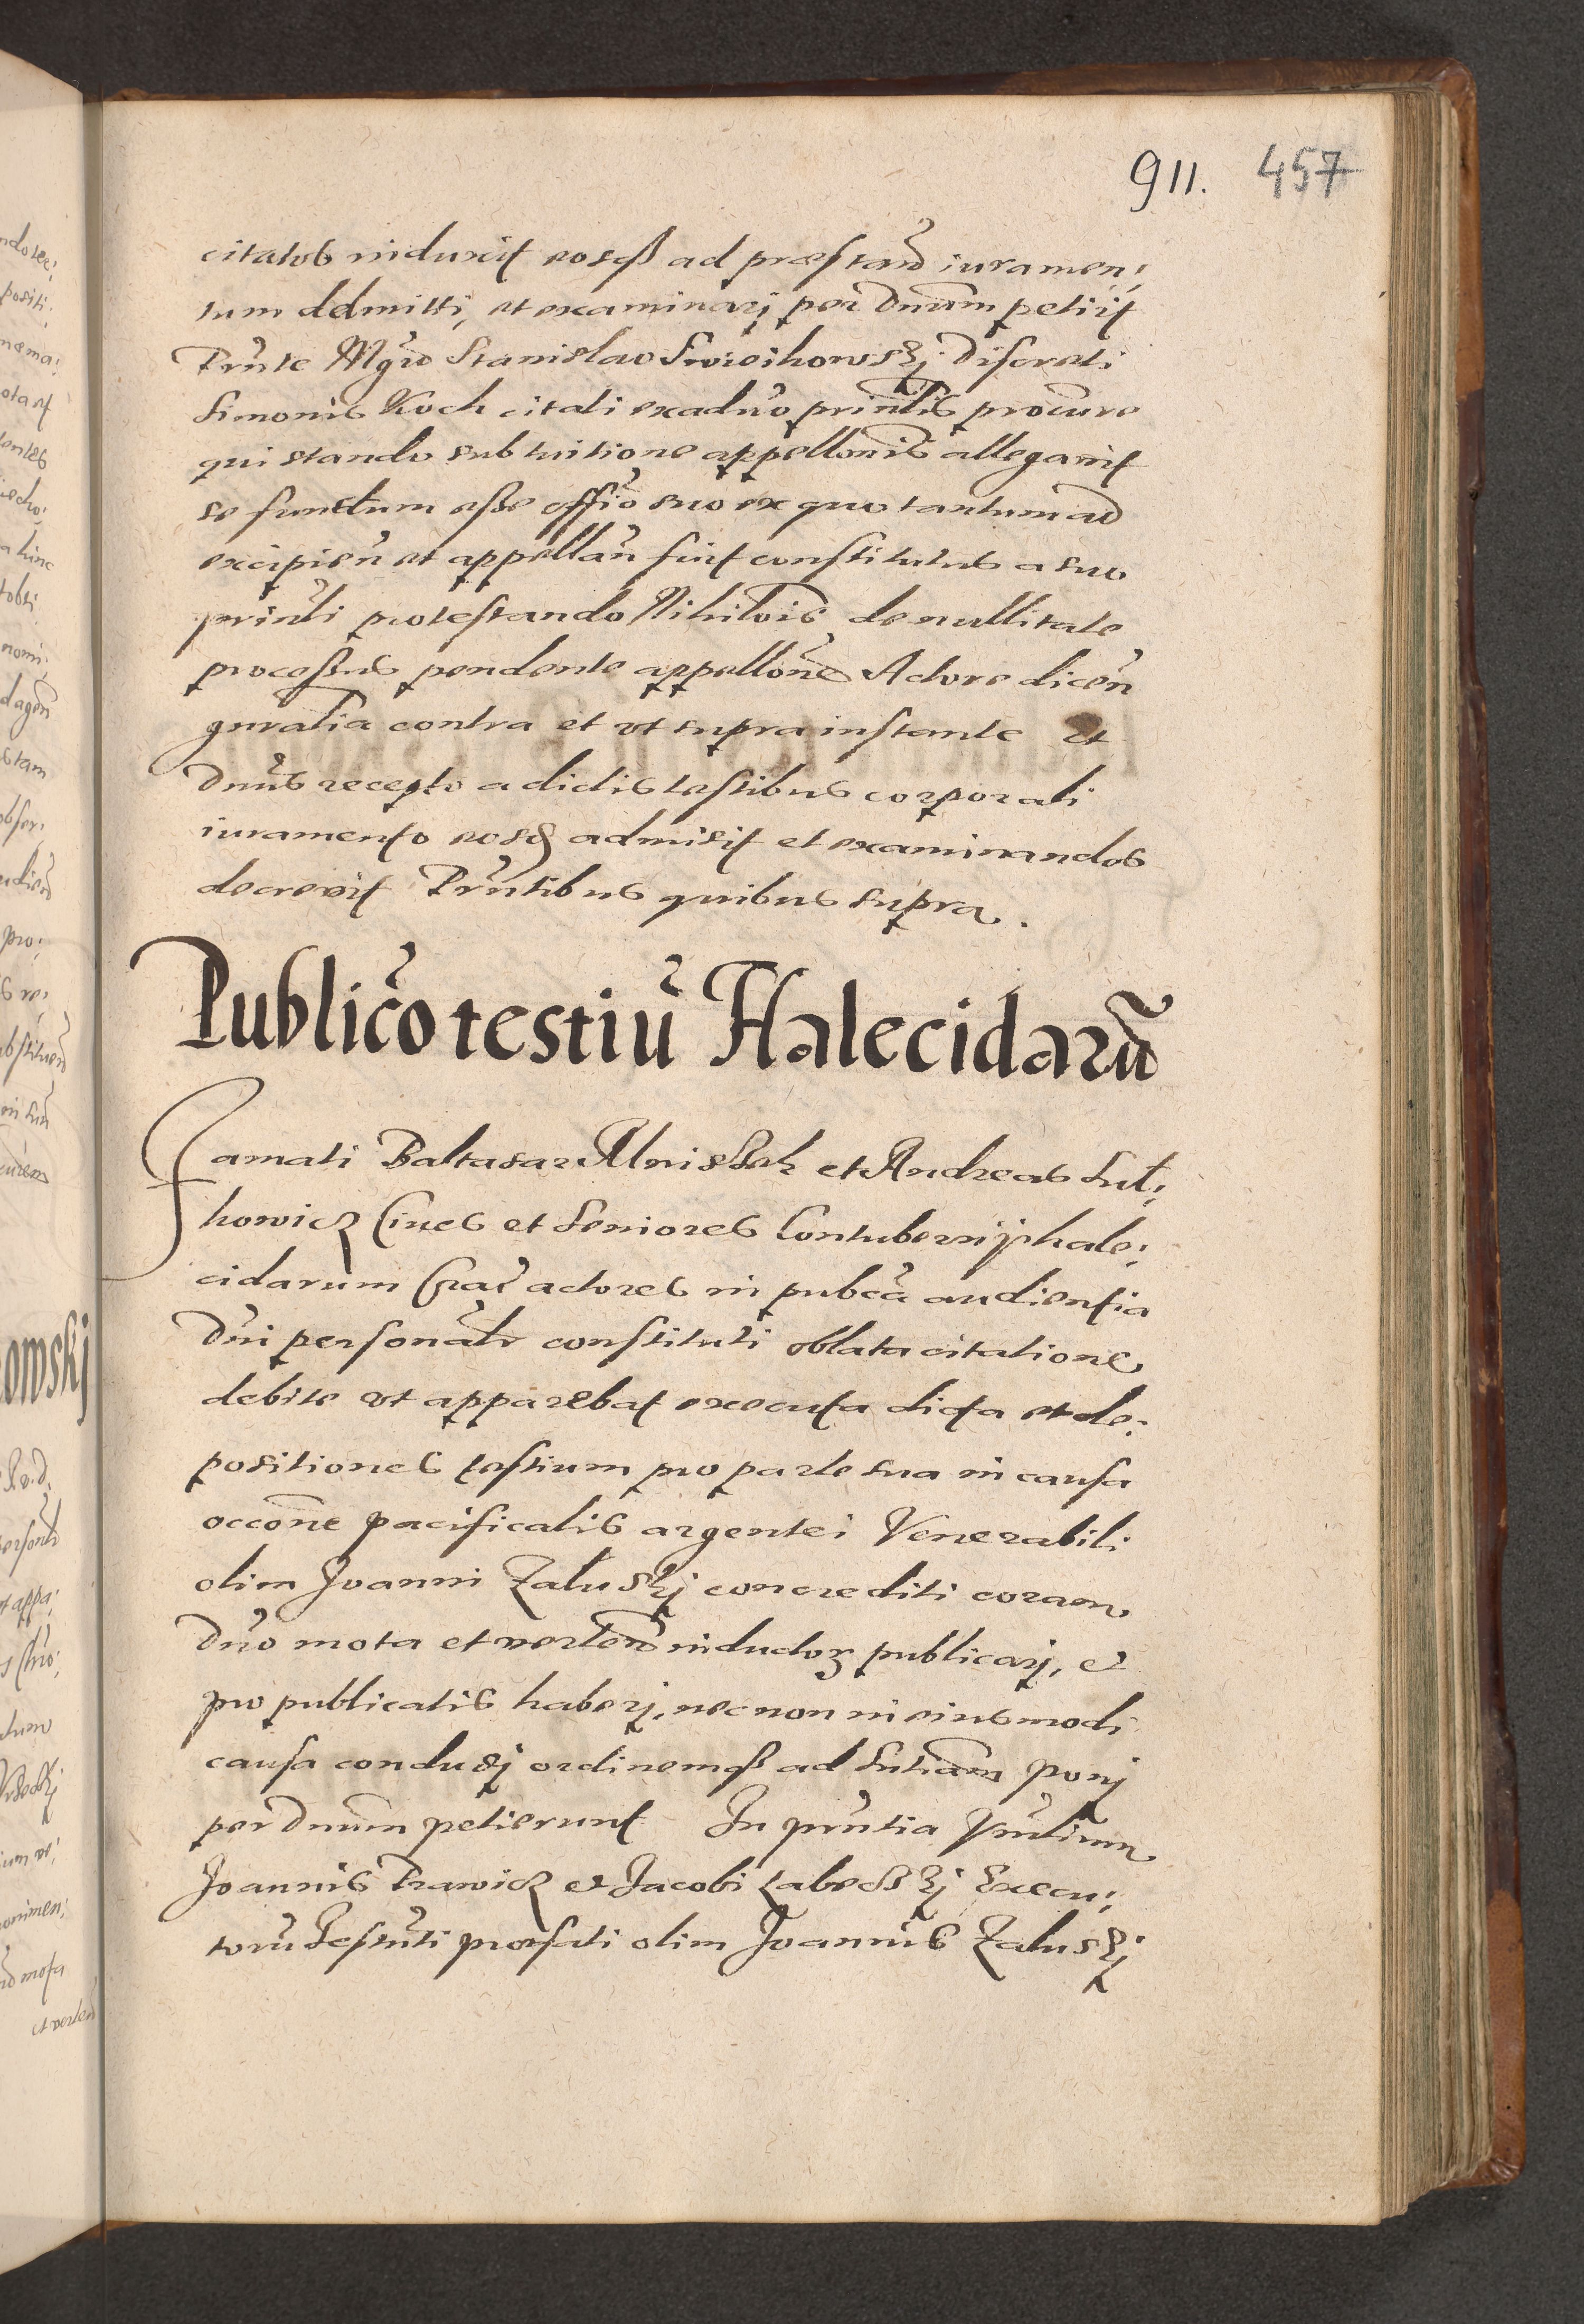 911. 457
citatos induxit eosq3 ad præstand iuramen:
tum admitti, et examinarj per Dnum petijt
Pnte Mgro Stanislao Swieihowskj Discreti
Simonis Koch citati ex aduo prinlis procure
qui stando sub tuitione appellonis allegauit
se functum esse offio suo ex quo tantum ad
excipien et appellan fuit constitutus a suo
prinli protestando Nihilois de nullitate
processus pendente appellone Actore dicen
gnralia contra et vt supra instante Et
Dnus recepto a dictis testibus corporali
iuramento eosd admisit et examinandos
decreuit Pntibus quibus supra.
Publico testiu Halecidaru
Famati Baltasar Mnissek et Andreas Sut:
howicz Ciues et Seniores Contubernij hale:
cidarum Crac actores in pubca audientia
Dni personalr constituti oblata citatione
debite vt apparebat executa dicta et de:
positiones testium pro parte sua in causa
occone pacificalis argentei Venerabili
olim Joanni Załuskj concrediti coram
Dno mota et verten inductor publicarj, et
pro publicatis haberj, nec non in eiusmodi
causa concludj ordinemq3 ad Sntiam ponj
per Dnum petierunt In pntia Vnlium
Joannis Trawicz et Jacobi Labeczkj Execu:
toru Testnti præfati olim Joannis Załuskj